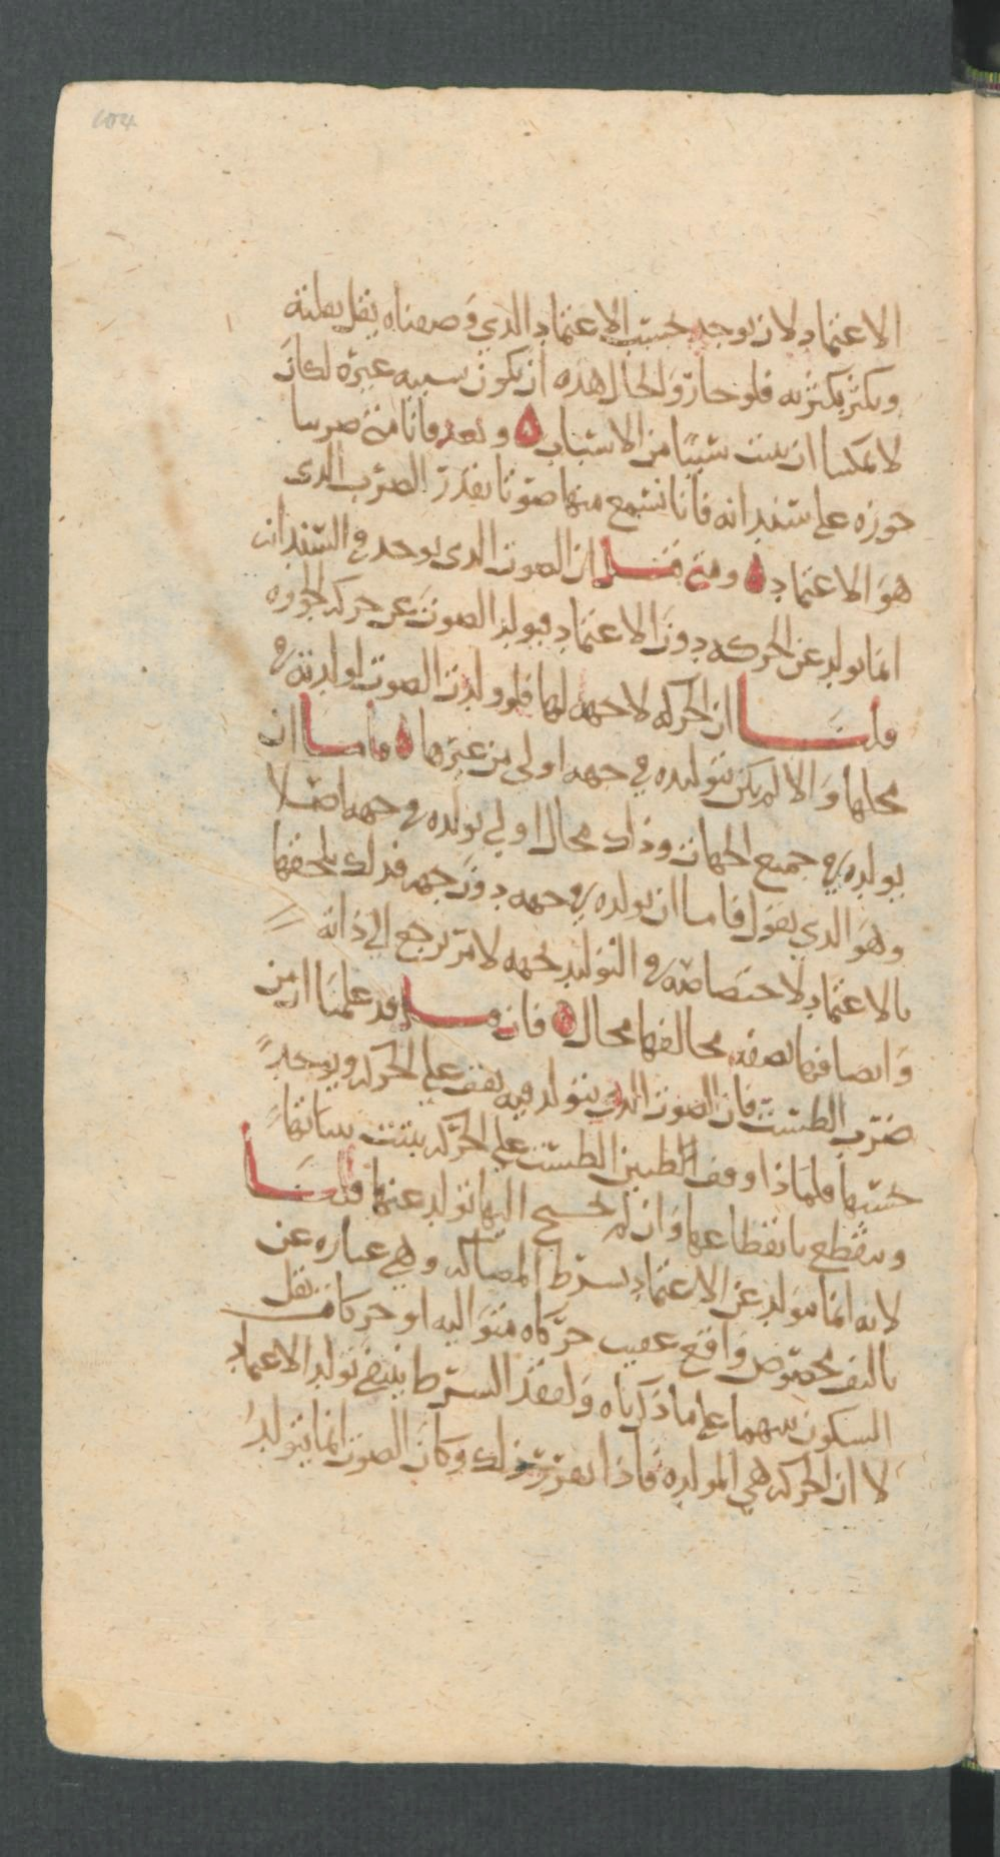 الاعتماد لانه يوجد بحسب الاعتماد الذي وصفناه يقل بقلته
ويكثر بكثرته فلو جاز والحال هذه ان يكون سببه غيره لكان
لا يمكننا ان نثبت شيئا من الاسباب ٥ وبعد فانا متى ضربنا
جوزه على سندانه فانا نسمع منها صوتا بقدر الضرب الذي
هو الاعتماد ٥ ومتى قيل ان الصوت الذي يوجد في السندان
انما تولد عن الحركه دون الاعتماد فيولد الصوت عن حركه الجوزه
قلنا ان الحركه لا جهه لها فلو ولدت الصوت لولدته في
محلها والا لم يكن بتوليده في جهه اولى من غيرها ٥ فاما ان
يولده في جميع الجهات وذلك محال او لا يولده في جهه اصلا
وهو الذي نقول فاما ان يولده في جهه دون جهه فذلك يلحقها
بالاعتماد لاختصاصه في التوليد بجهه لامر يرجع الى ذاته
واتصافها بصفه مخالفها محال ٥ فان قيل قد علمنا ان من
ضرب الطست فان الصوت الذي يتولد فيه يقف على الحركه ويوجد
حسبها فلماذا وقف الطنين الطست على الحركه يثبت بثباتها
وينقطع بانقطاعها وان لم يحتج اليها تولد عنها قلنا
لانه انما يتولد عن الاعتماد بشرط المصاكه وهي عباره عن
تاليف مخصوص واقع عقيب حركاه متواليه او حركات يقل
السكون بينهما على ما ذكرناه ولفقد الشرط ينتفي تولد الاعتماد
لا ان الحركه هي المولده فاذا تقرر ذلك وكان الصوت انما يتولد